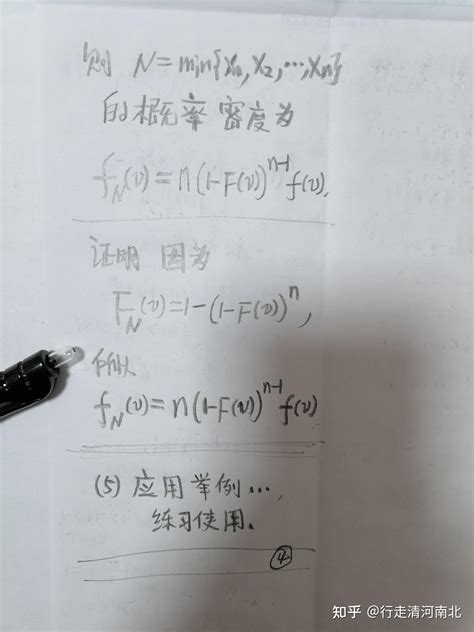 则 N=min{X₁,X₂,…,Xn}
的概率密度为
f_N(v)=n(1-F(v))^{n-1}f(v).
证明 因为
F_N(v)=1-(1-F(v))^n,
所以
f_N(v)=n(1-F(v))^{n-1}f(v)
(5) 应用举例…,
练习使用.
④
知乎 @行走清河南北